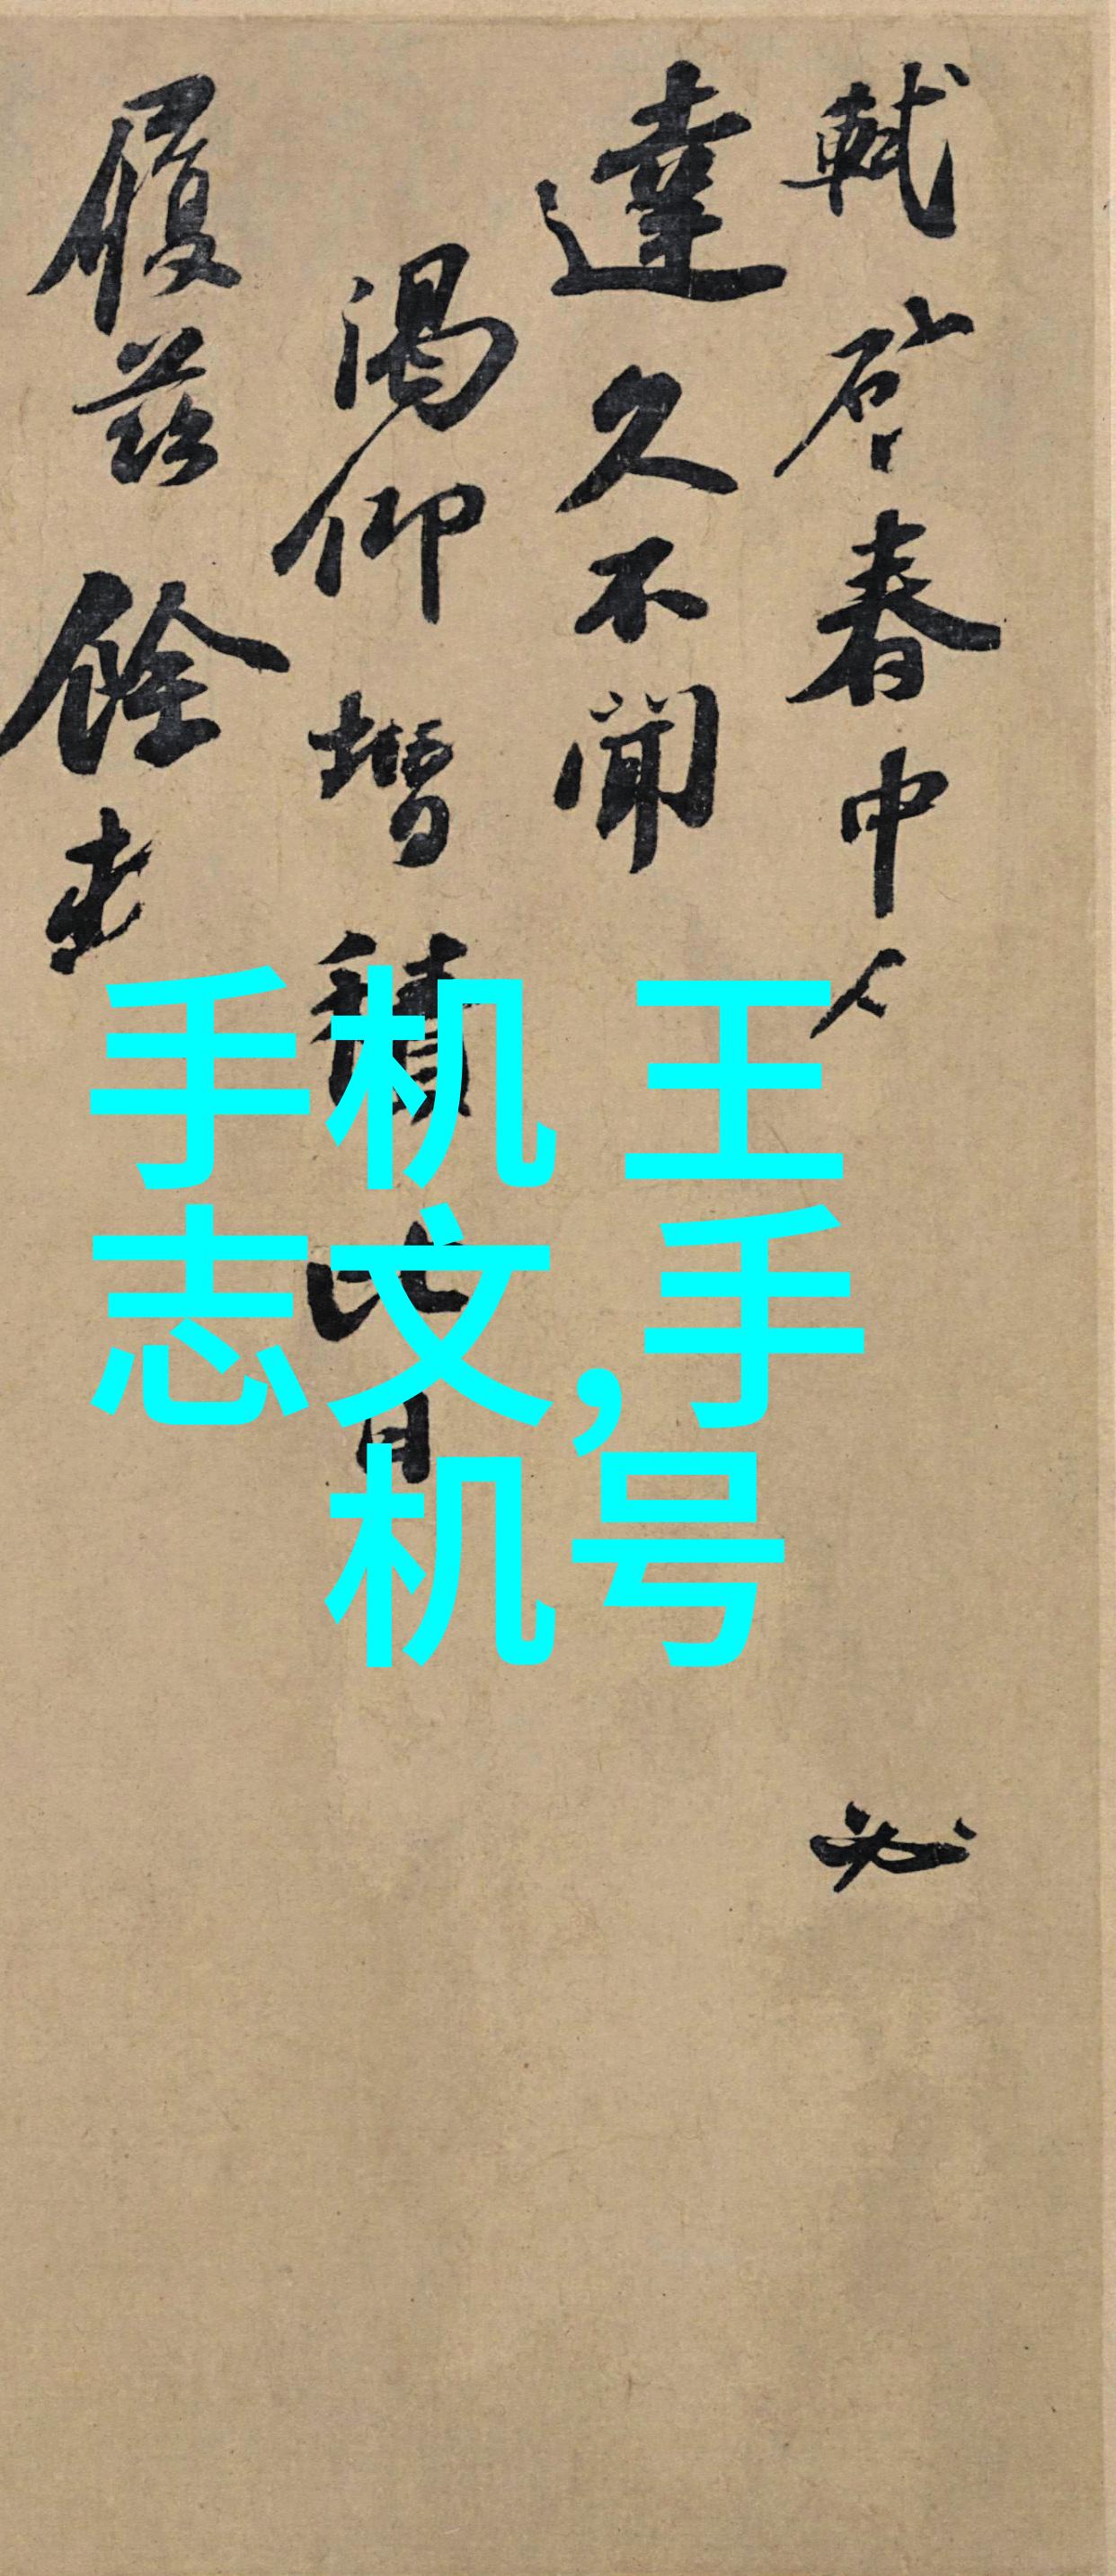 軾啓春中人必
達久不聞
渴仰增積比日
履茲餘
手机 王
志文,手
机号